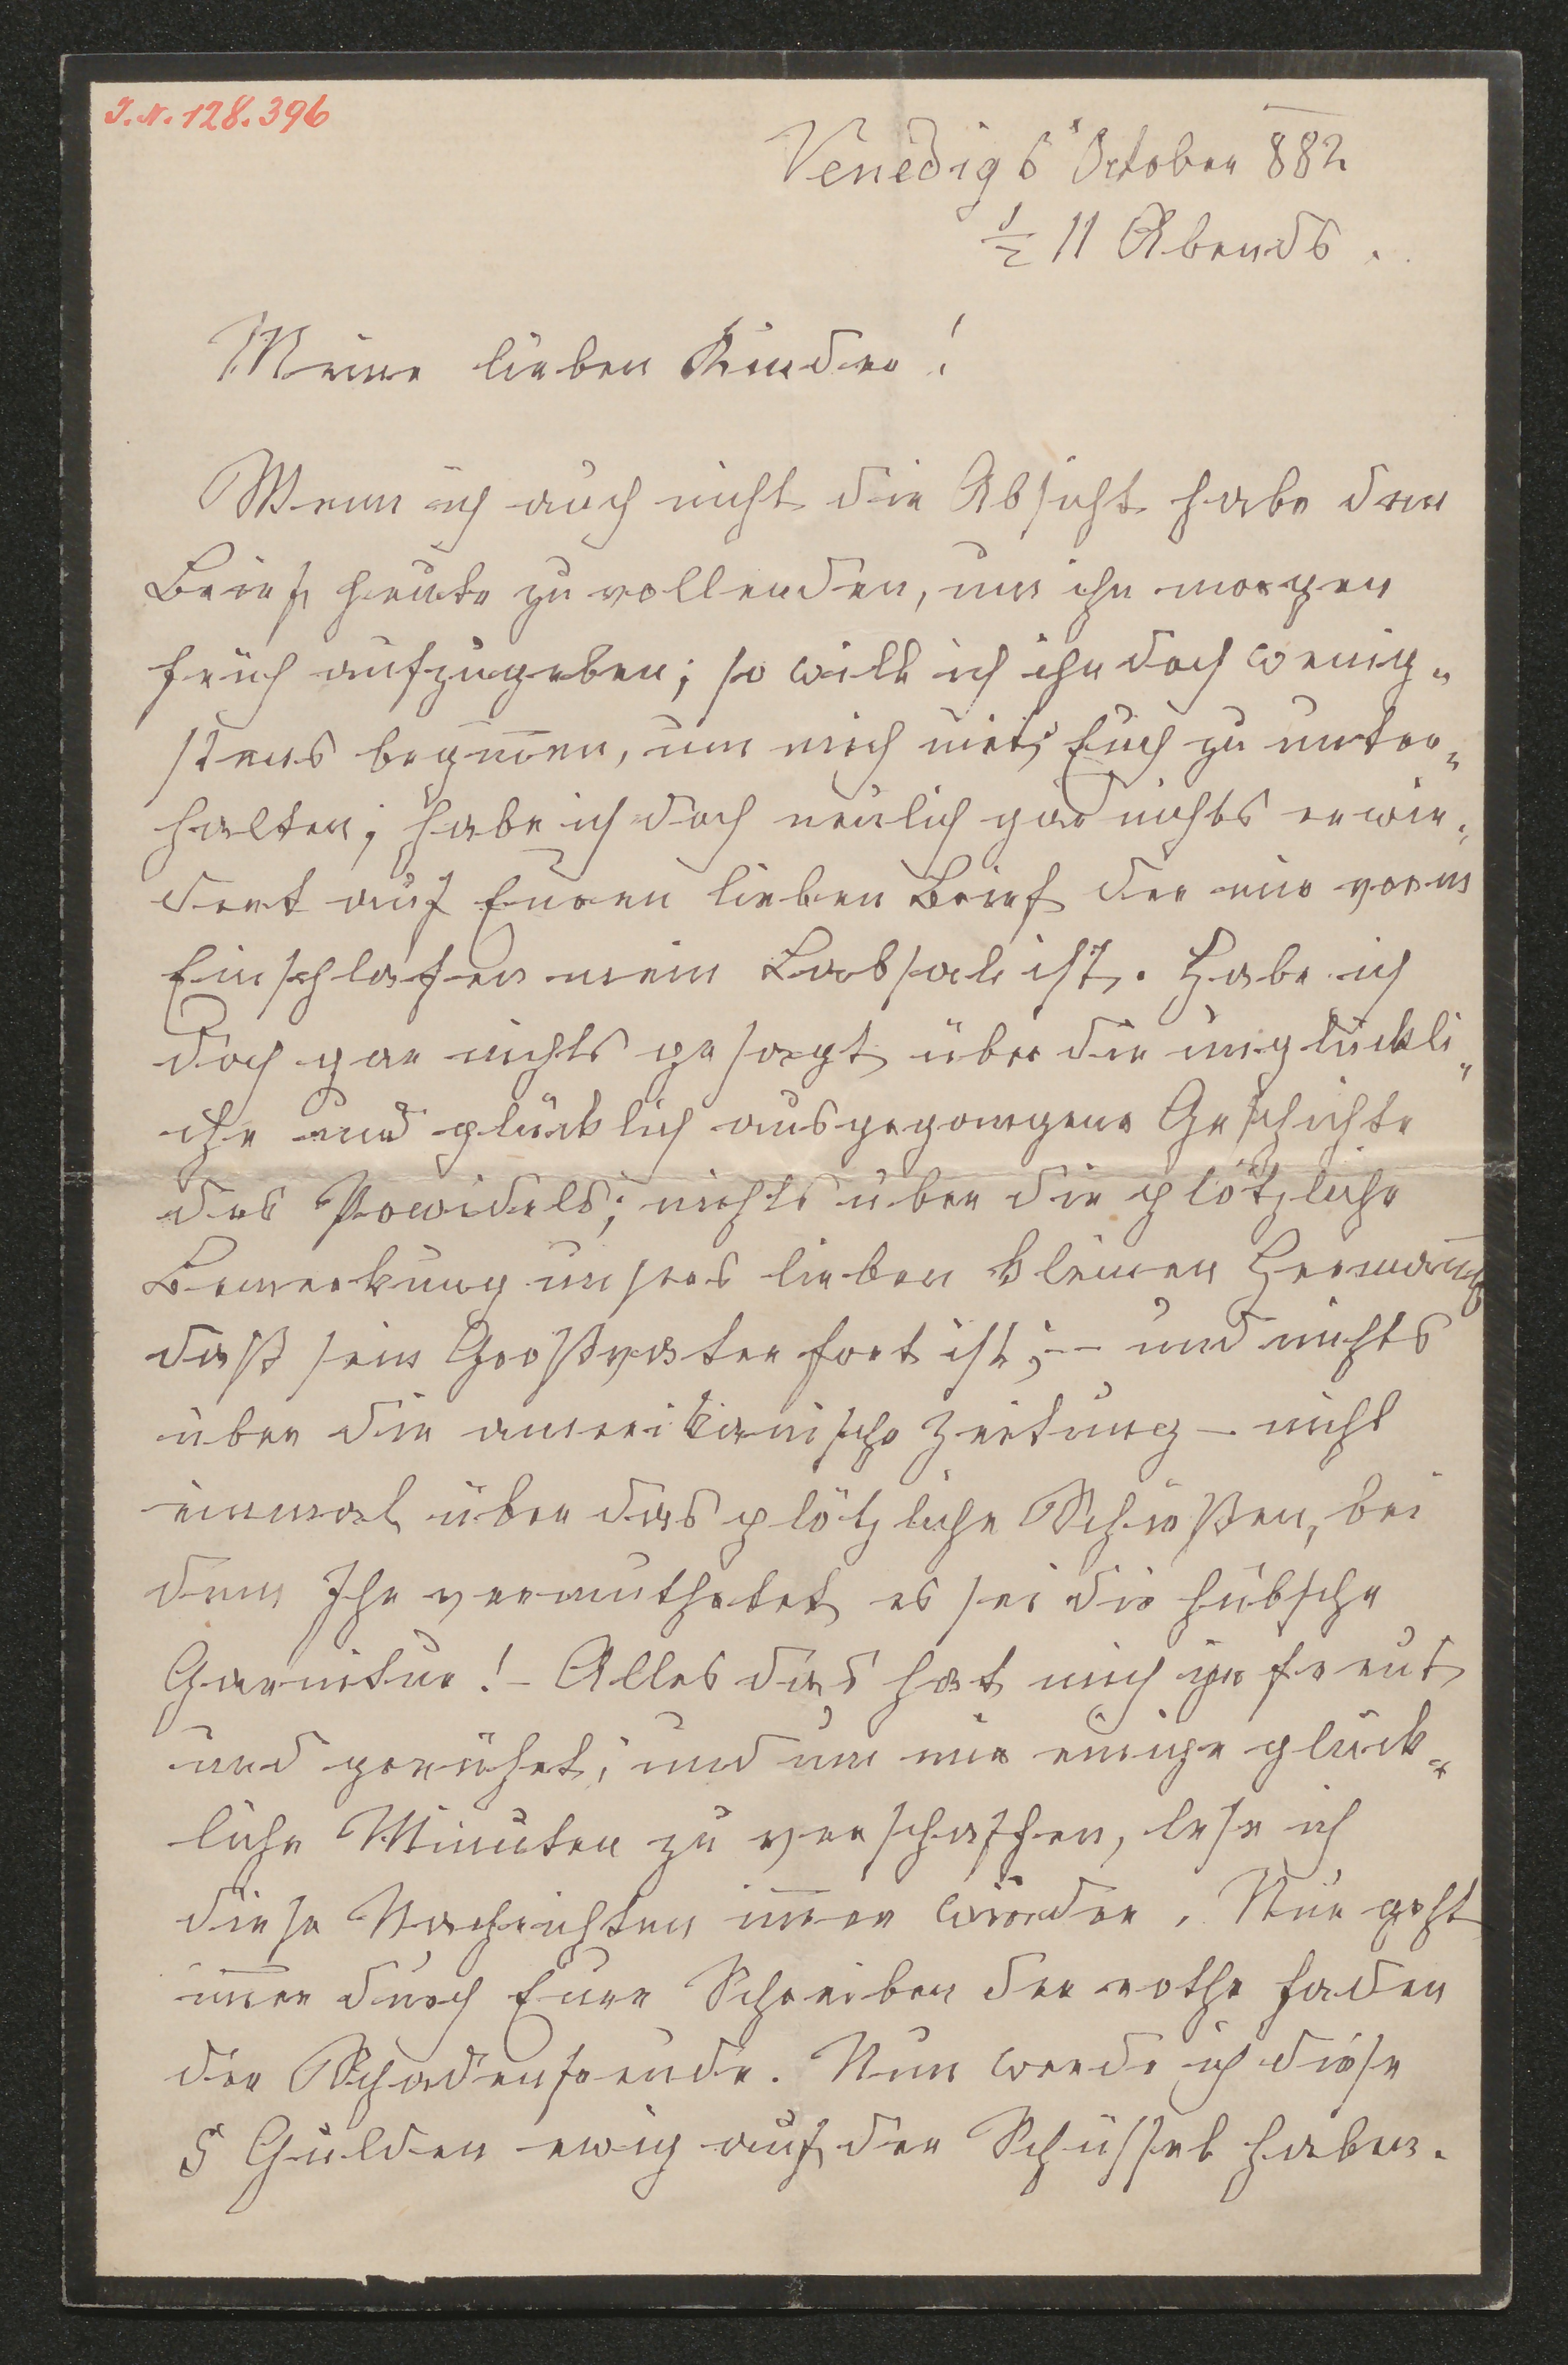 J.N. 128.396
Venedig 6t October 882
½ 11 Abends.
Meine lieben Kinder!
Wenn ich auch nicht die Absicht habe den
Brief heute zu vollenden, um ihn morgen
früh aufzugeben; so will ich ihn doch wenig„
stens begin̅en, um mich mit Euch zu unter„
halten; habe ich doch neulich gar nichts erwie„
dert auf Euren lieben Brief der mir vorm
Einschlafen mein Labsal ist. Habe ich
doch gar nichts gesagt über die unglückli„
che und glücklich ausgegangene Geschichte
des Powidels; nichts über die plötzliche
Bemerkung unseres lieben kleinen Herman̅
daß sein Großvater fort ist; – und nichts
über die amerikanische Zeitung – nicht
einmal über das plötzliche Schießen, bei
dem Ihr vermuthetet es sei die hübsche
Garnitur! – Alles das hat mich gefreut
und gerührt; und um mir einige glück„
liche Minuten zu verschaffen, lese ich
diese Nachrichten im̅er wieder. Nur geht
im̅er durch Eure Schreiben der rothe Faden
der Schadenfreude. Nun werde ich diese
5 Gulden ewig auf der Schüssel haben.